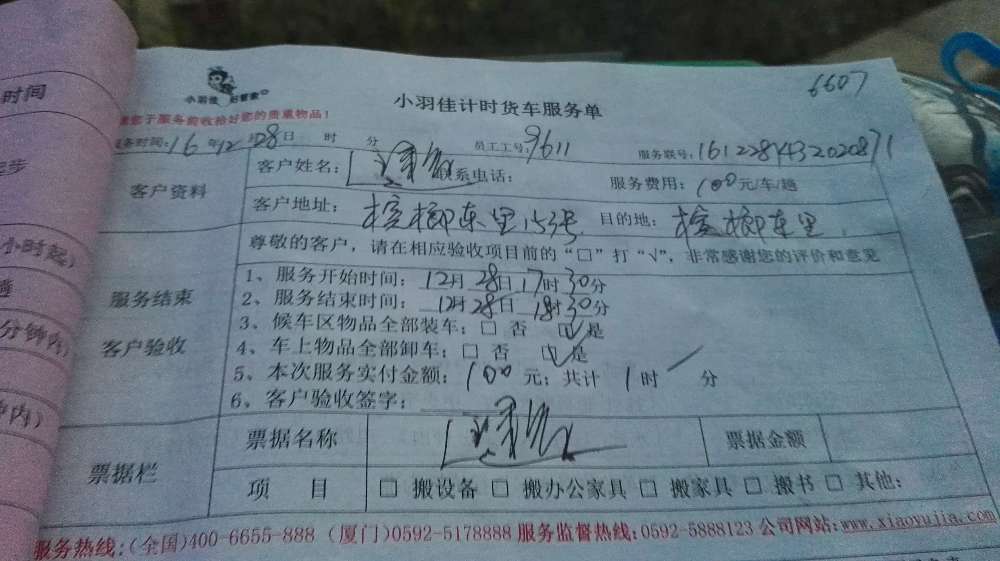 6607
小羽佳 好管家
小羽佳计时货车服务单
于服务前收拾好您的贵重物品！
服务时间：16年12月28日 时 分 员工工号：9611 服务联号：161228143202087 1
客户资料
客户姓名： 联系电话： 服务费用：100元/车/趟
客户地址：槟榔东里153号 目的地：槟榔东里
尊敬的客户，请在相应验收项目前的“□”打“√”，非常感谢您的评价和意见
服务结束
客户验收
1、服务开始时间：12月28日17时30分
2、服务结束时间：12月28日18时30分
3、候车区物品全部装车：□ 否 ☑是
4、车上物品全部卸车：□ 否 ☑是
5、本次服务实付金额：100元；共计 1时 / 分
6、客户验收签字：
票据栏
票据名称 票据金额
项 目 □ 搬设备 □ 搬办公家具 □ 搬家具 □ 搬书 □ 其他：
服务热线：(全国)400-6655-888 (厦门)0592-5178888 服务监督热线：0592-5888123 公司网站：www.xiaoyujia.com
时间
起步
小时起)
趟
分钟内)
钟内)